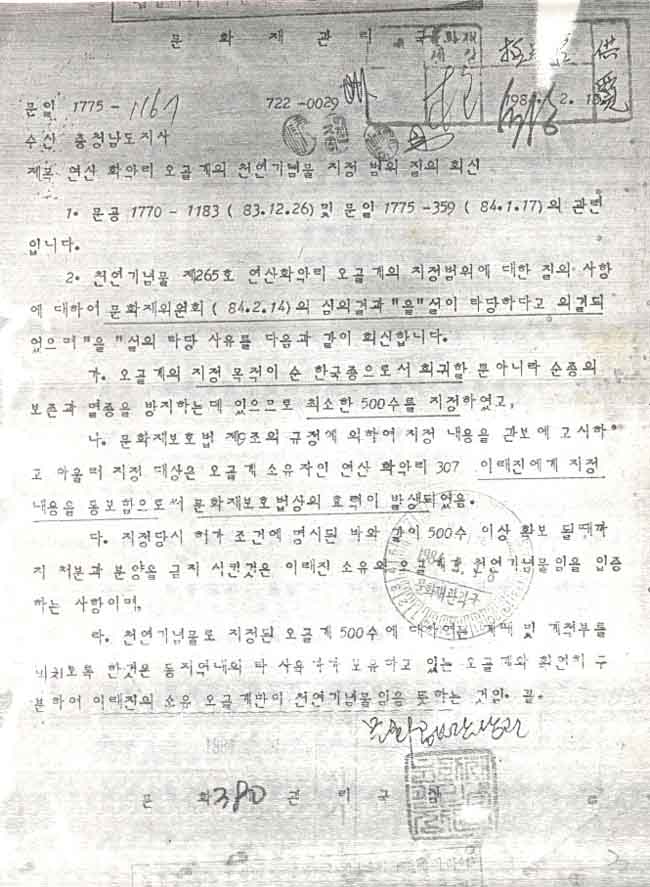 문 화 재 관 리 국
문화재
供覽
문일 1775 - 1167 722 -0029 198 . 2. 1
수신 충청남도지사
제목 연산 화악리 오골계의 천연기념물 지정 범위 질의 회신
1. 문공 1770 - 1183 ( 83.12.26) 및 문일 1775 -359 ( 84.1.17)의 관련
입니다.
2. 천연기념물 제265호 연산화악리 오골계의 지정범위에 대한 질의 사항
에 대하여 문화재위원회 ( 84.2.14)의 심의결과 "을"설이 타당하다고 의결되
었으며 "을 "설의 타당 사유를 다음과 같이 회신합니다.
가. 오골계의 지정 목적이 순 한국종으로서 희귀할 뿐아니라 순종의
보존과 멸종을 방지하는데 있으므로 최소한 500수를 지정하였고,
나. 문화재보호법 제9조의 규정에 의하여 지정 내용을 관보에 고시하
고 아울러 지정 대상은 오골계 소유자인 연산 화악리 307 이래진에게 지정
내용을 통보함으로써 문화재보호법상의 효력이 발생되었음.
다. 지정당시 허가 조건에 명시된 바와 같이 500수 이상 확보 될때까
지 처분과 분양을 금지 시킨것은 이래진 소유의 오골계가 천연기념물임을 입증
하는 사항이며,
라. 천연기념물로 지정된 오골계 500수에 대하여는 및 계적부를
비치토록 한것은 동지역내의 타 사육 보유하고 있는 오골계와 확연히 구
분하여 이래진의 소유 오골계만이 천연기념물임을 뜻하는 것임. 끝.
1984
문화재관리국
문 화 380 관 리 국